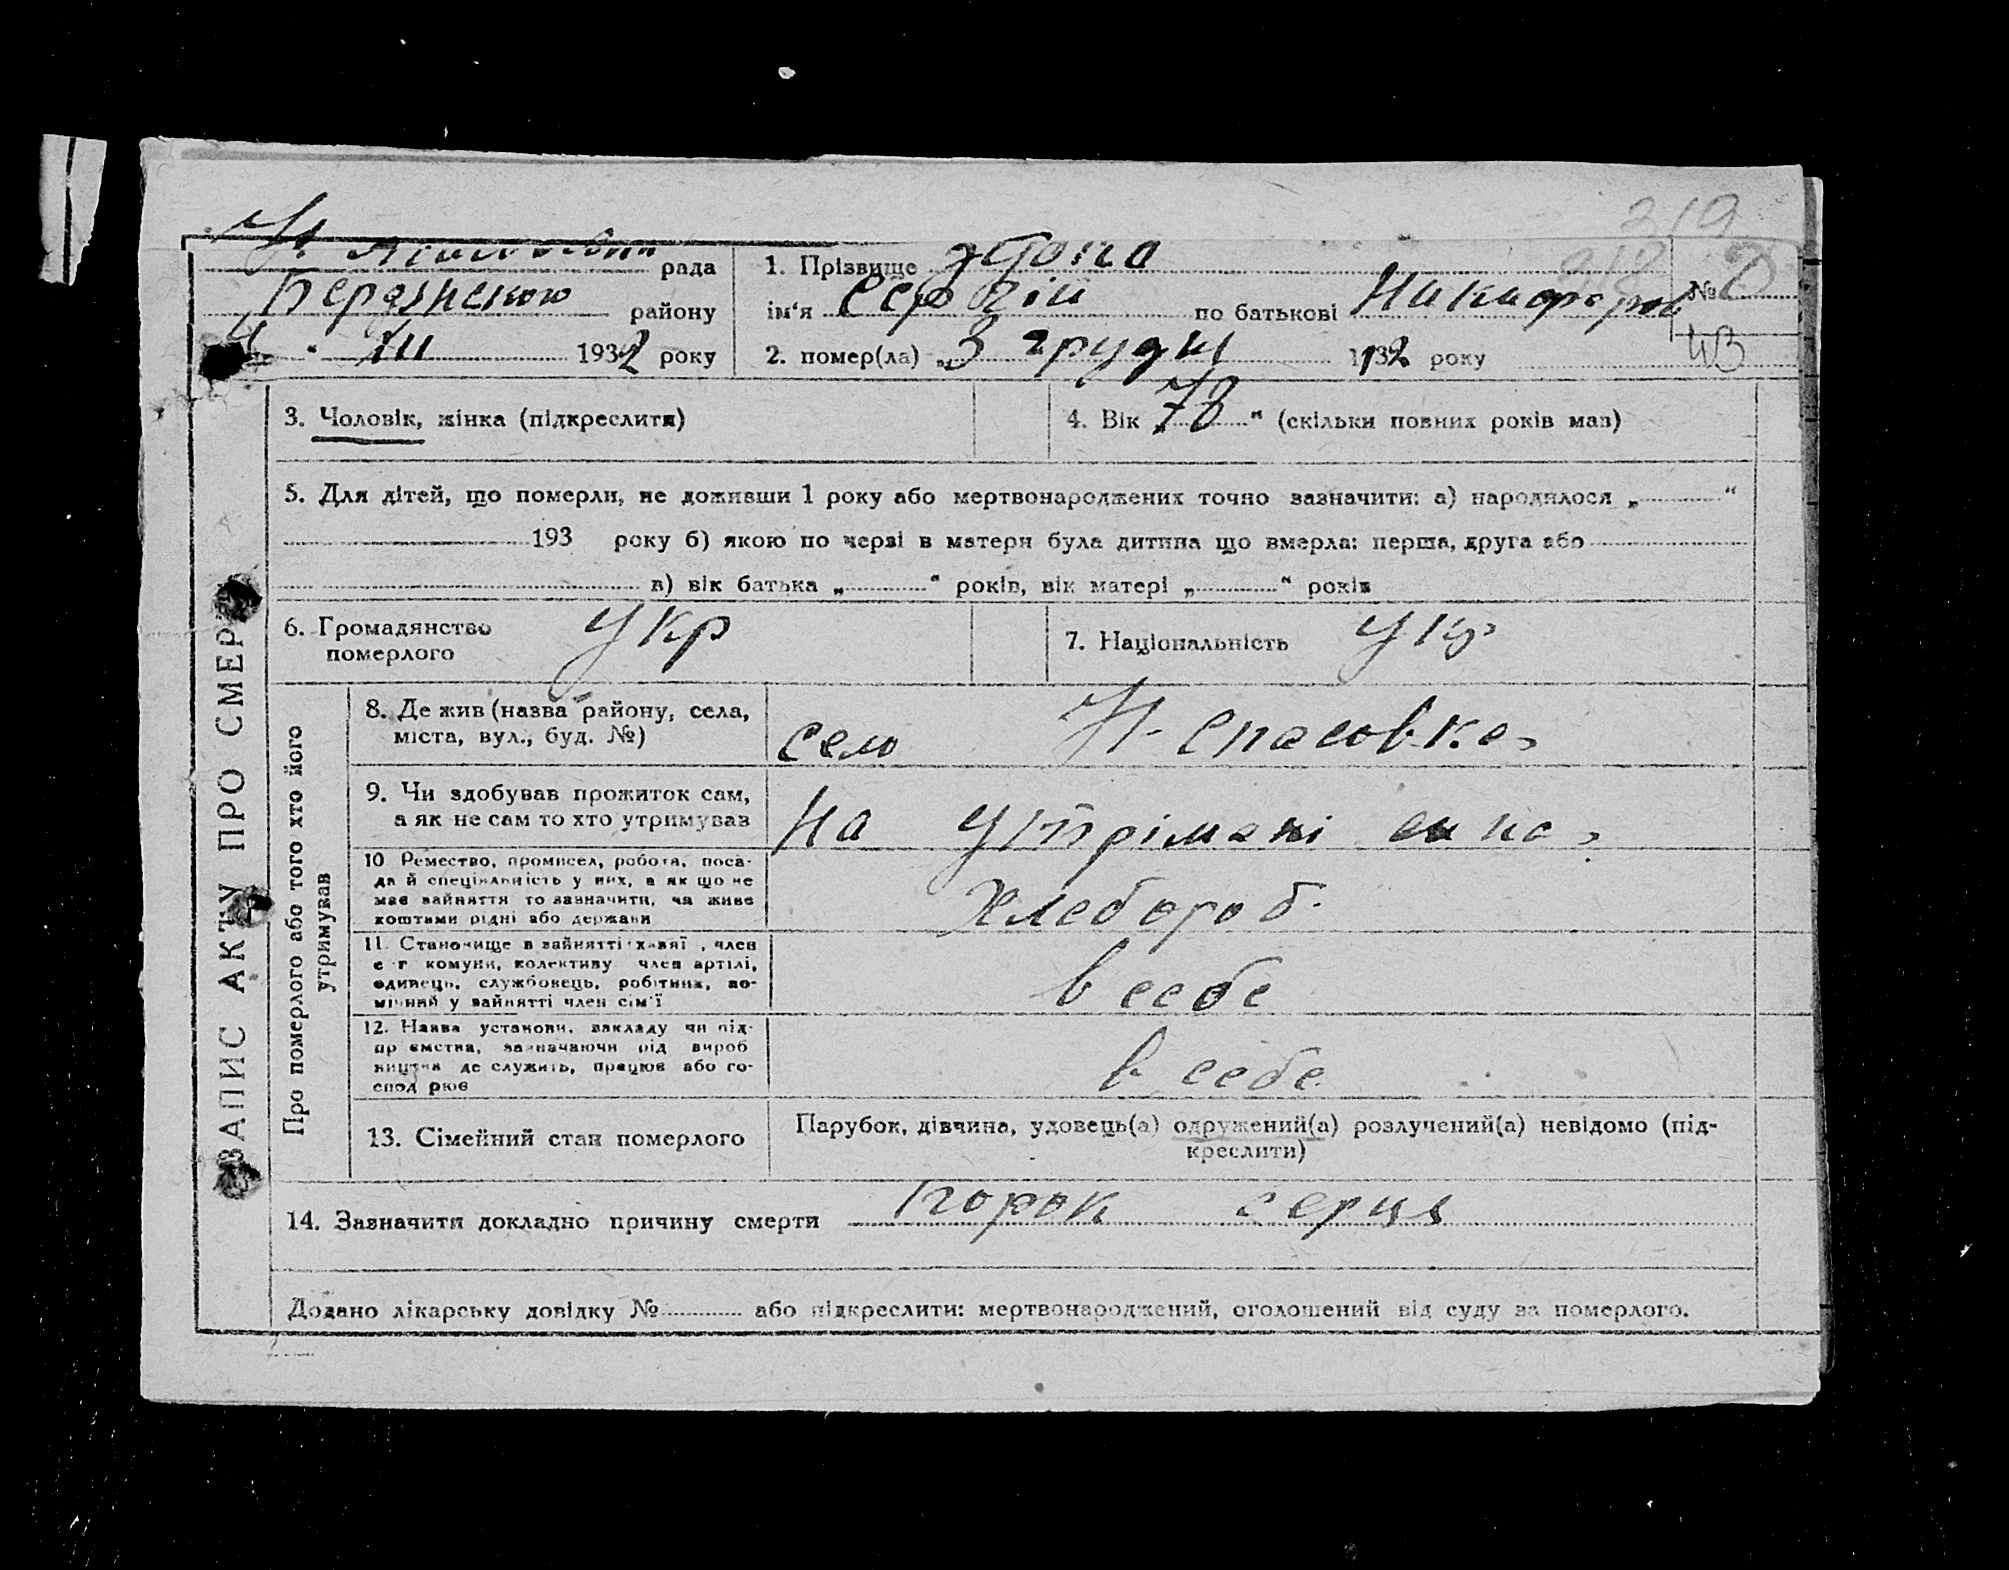 319
318
Н.
рада
Бердянского району
4 " XII 1932 року
1. Прізвище
ім'я Сергій по батькові Никифоров
2. помер(ла) „3 грудня 1932 року
№
43
3. Чоловік, жінка (підкреслити)
4. Вік „78" (скільки повних років мав)
5. Для дітей, що померли, не доживши 1 року або мертвонароджених точно зазначити: а) народилося „ “
193 року б) якою по черзі в матери була дитина що вмерла: перша, друга або
в) вік батька „ “ років, вік матері „ “ років
6. Громадянство померлого Укр
7. Національність Укр
ЗАПИС АКТУ ПРО СМЕР
Про померлого або того хто його утримував
8. Де жив (назва району, села,
міста, вул., буд. №)
село Н-Спасовка
9. Чи здобував прожиток сам,
а як не сам то хто утримував
На утрімані
10 Ремество, промисел, робота, поса-
да й спеціяльність у них, а як що не
має зайняття то зазначити, чи живе
коштами рідні або держави
Хлебороб
11. Становище в зайнятті , член
с г комуни, колективу член артілі,
одинець, службовець, робітник, по-
мічний у зайнятті член сім'ї
в себе
12. Назва установи, закладу чи під-
пр ємства, зазначаючи рід вироб
ництва де служить, працює або го-
спод рює
в себе
13. Сімейний стан померлого
Парубок, дівчина, удовець(а) одружений(а) розлучений(а) невідомо (під-
креслити)
14. Зазначити докладно причину смерти порок серця
Додано лікарську довідку № або підкреслити: мертвонароджений, оголошений від суду за померлого.